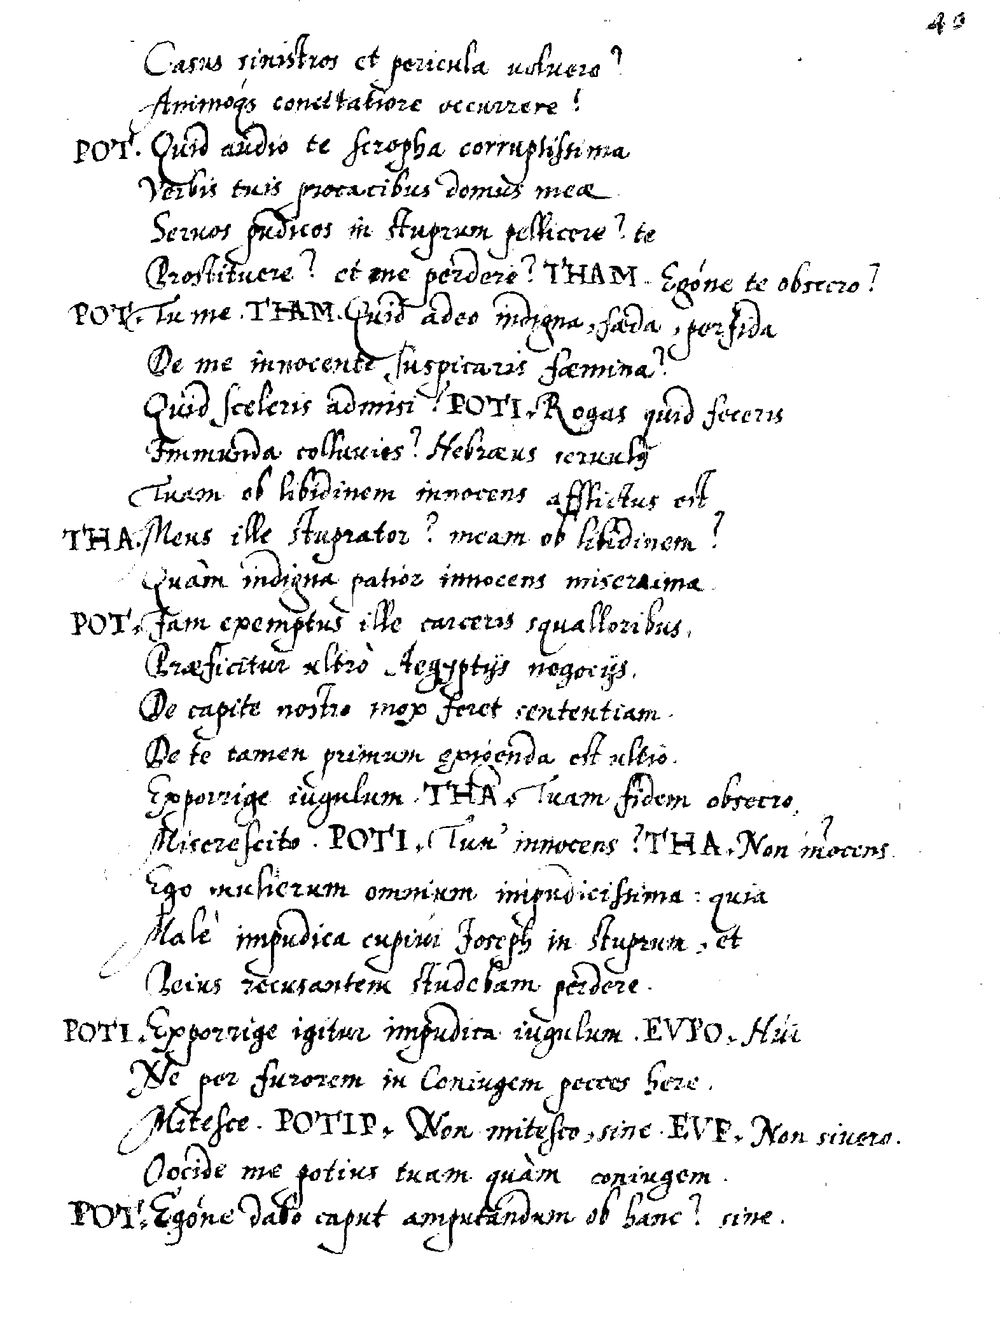 40
Casus sinistros et pericula voluere?
Animoq́s concitatiore occurrere!
POT. Quid audio te scropha corruptissima
Verbis tuis procacibus domus meæ
Seruos pudicos in stuprum pellicere? te
Prostituere? et me perdere? THAM. Egóne te obsecro?
POT. Tu me. THAM. Quid adeo indigna, fæda, perfida
De me innocente suspicaris fæmina?
Quid sceleris admisi? POTI. Rogas quid feceris
Immunda colluuies? Hebræus seruulꝰ
Tuam ob libidinem innocens afflictus est
THA. Meus ille stuprator? meam ob libidinem?
Quàm indigna patior innocens miserrima
POT. Iam exemptus ille carceris squalloribus,
Præficitur vltrò Aegyptijs negocijs,
De capite nostro mox feret sententiam.
De te tamen primum exigenda est ultio.
Exporrige iugulum. THA. Tuam fidem obsecro,
Miserescito. POTI. Tun' innocens? THA. Non innocens
Ego mulierum omnium impudicissima: quia
Malè impudica cupiui Joseph in stuprum, et
Peius recusantem studebam perdere.
POTI. Exporrige igitur impudica iugulum. EVPO. Húi
Ne per furorem in Coniugem pecces here.
Mitesce. POTIP. Non mitesco, sine. EVP. Non sivero.
Occide me potius tuam quàm coniugem.
POT. Egóne dabo caput amputandum ob hanc? sine.